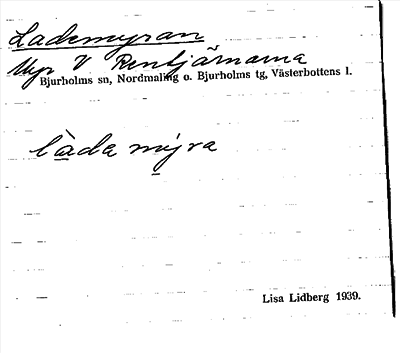 Lademyran
Myr V Rentjärnarna
Bjurholms sn, Nordmaling o. Bjurholms tg, Västerbottens l.
làda mýra
Lisa Lidberg 1939.